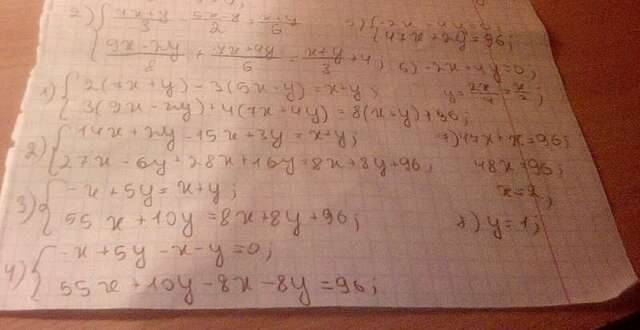 2) { (7x+y)/3 - (5x-y)/2 = (x+y)/6
{ (9x-2y)/8 + (7x+4y)/6 = (x+y)/3 + 4;
5) { -2x+4y=0;
{ 47x+2y=96;
6) -2x+4y=0;
y = 2x/4 = x/2;
1) { 2(7x+y)-3(5x-y)=x+y;
{ 3(9x-2y)+4(7x+4y)=8(x+y)+96;
2) { 14x+2y-15x+3y=x+y;
{ 27x-6y+28x+16y=8x+8y+96;
7) 47x+x=96;
48x=96;
x=2;
3) { -x+5y=x+y;
{ 55x+10y=8x+8y+96;
8) y=1;
4) { -x+5y-x-y=0;
{ 55x+10y-8x-8y=96;